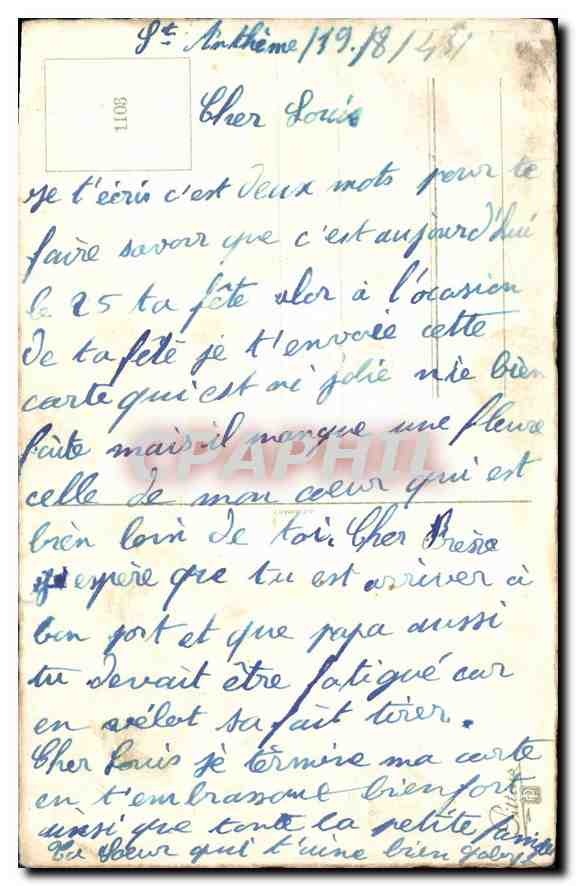 St Anthème/19/8/43
1108
Cher Louis
Je t'écris c'est deux mots pour te
faire savoir que c'est aujourd'hui
le 25 ta fête alor à l'ocasion
de ta fête je t'envoie cette
carte qui est ni jolie nie bièn
faite mais il manque une fleure
CPAPHIL
celle de mon coeur qui est
bièn loin de toi. Cher Frère
j'espère que tu est arriver à
bon port et que papa aussi
tu devait être fatigué car
en vélot sa fait tirer.
Cher Louis je términe ma carte
en t'embrassant bien fort
ainsi que toute la petite famille
Ta Soeur qui t'aime bien Gaby